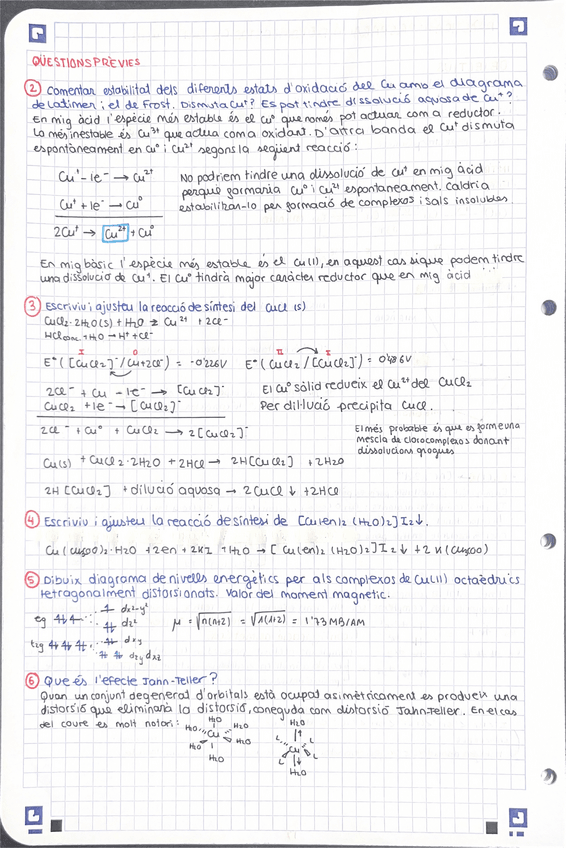 QÜESTIONS PRÈVIES
2 Comentar estabilitat dels diferents estats d'oxidació del Cu amb el diagrama
de Latimer i el de Frost. Dismuta Cu⁺? Es pot tindre dissolució aquosa de Cu⁺?
En mig àcid l'espècie més estable és el Cu⁰ que només pot actuar com a reductor.
La més inestable és Cu³⁺ que actua com a oxidant. D'altra banda el Cu⁺ dismuta
espontàneament en Cu⁰ i Cu²⁺ segons la següent reacció:
Cu⁺ - 1e⁻ → Cu²⁺
Cu⁺ + 1e⁻ → Cu⁰
2Cu⁺ → Cu²⁺ + Cu⁰
No podriem tindre una dissolució de Cu⁺ en mig àcid
perque formaria Cu⁰ i Cu²⁺ espontaneament. Caldria
estabilitzar-lo per formació de complexos i sals insolubles
En mig bàsic l'espècie més estable és el Cu(I), en aquest cas sí que podem tindre
una dissolució de Cu⁺. El Cu⁰ tindrà major caràcter reductor que en mig àcid
3 Escriviu i ajusteu la reacció de síntesi del CuCl (s)
CuCl₂·2H₂O(s) + H₂O ⇌ Cu²⁺ + 2Cl⁻
HCl conc + H₂O → H⁺ + Cl⁻
I 0
E°([CuCl₂]⁻/Cu+2Cl⁻) = -0'226V
II I
E°(CuCl₂/[CuCl₂]⁻) = 0'486V
2Cl⁻ + Cu - 1e⁻ → [CuCl₂]⁻
CuCl₂ + 1e⁻ → [CuCl₂]⁻
2Cl⁻ + Cu⁰ + CuCl₂ → 2[CuCl₂]⁻
El Cu⁰ sòlid redueix el Cu²⁺ del CuCl₂
Per dil·lució precipita CuCl.
El més probable és que es forme una
mescla de clorocomplexos donant
dissolucions grogues
Cu(s) + CuCl₂·2H₂O + 2HCl → 2H[CuCl₂] + 2H₂O
2H[CuCl₂] + dilució aquosa → 2CuCl↓ + 2HCl
4 Escriviu i ajusteu la reacció de síntesi de [Cu(en)₂(H₂O)₂]I₂↓.
Cu(CH₃COO)₂·H₂O + 2en + 2KI + H₂O → [Cu(en)₂(H₂O)₂]I₂↓ + 2K(CH₃COO)
5 Dibuix diagrama de nivells energètics per als complexos de Cu(II) octaèdrics
tetragonalment distorsionats. Valor del moment magnetic.
eg dx²-y²
dz²
t₂g dxy
dzy dxz
μ = √n(n+2) = √1(1+2) = 1'73 MB/AM
6 Que és l'efecte Jahn-Teller?
Quan un conjunt degenerat d'orbitals està ocupat asimètricament es produeix una
distorsió que eliminarà la distorsió, coneguda com distorsió Jahn-Teller. En el cas
del coure es molt notori:
H₂O
H₂O H₂O
Cu
H₂O H₂O
H₂O
H₂O
L L
Cu
L L
H₂O